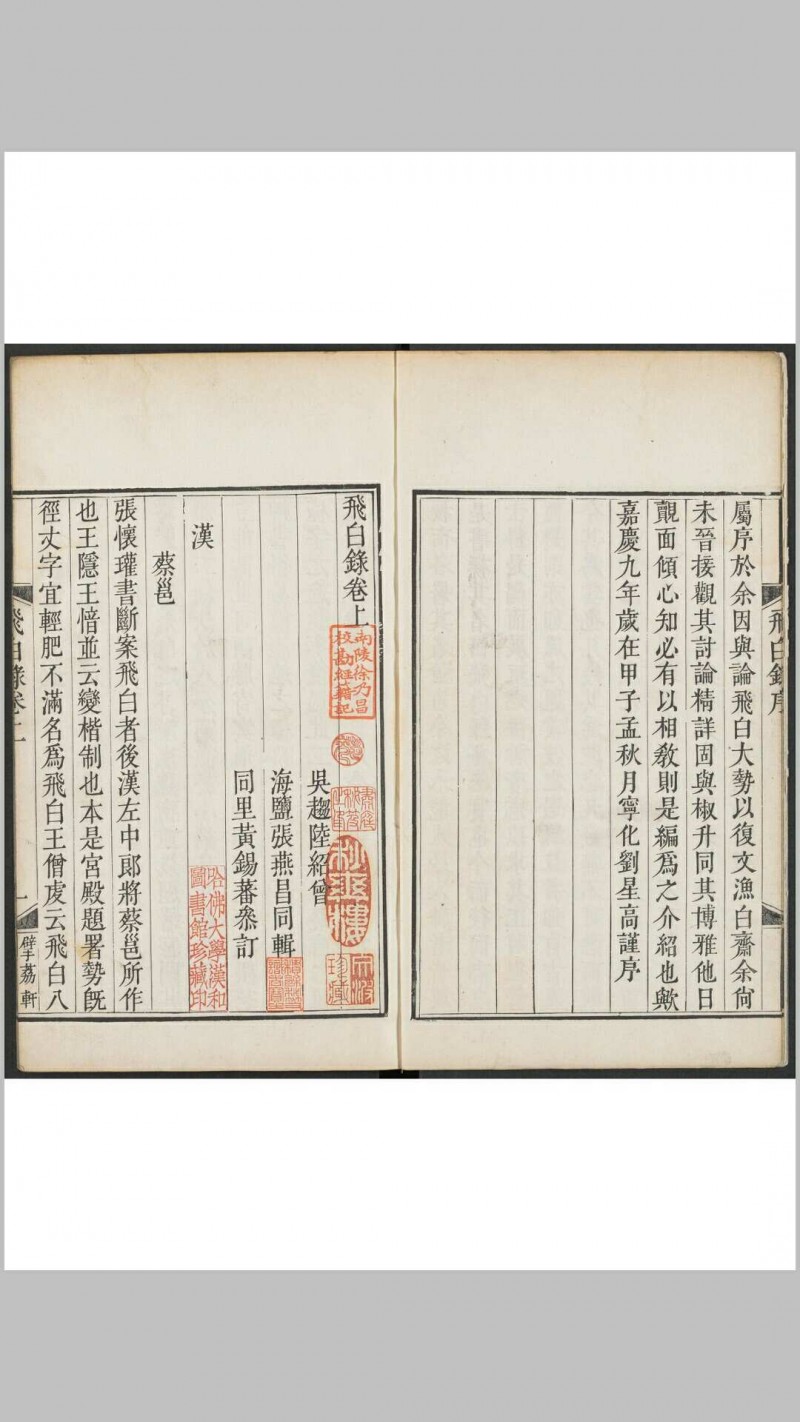 飛白錄序
屬序於余因與論飛白大勢以復文漁白齋余尙
未晉接觀其討論精詳固與椒升同其博雅他日
覿面傾心知必有以相敎則是編爲之介紹也歟
嘉慶九年歲在甲子孟秋月寧化劉星高謹序
飛白錄卷上
南陵徐乃昌
校勘經籍記
吳趨陸紹曾
海鹽張燕昌同輯
同里黃錫蕃叅訂
哈佛大學漢和
圖書館珍藏印
漢
蔡邕
張懷瓘書斷案飛白者後漢左中郞將蔡邕所作
也王隱王愔並云變楷制也本是宮殿題署勢旣
徑丈字宜輕肥不滿名爲飛白王僧虔云飛白八
飛白錄卷上
一
擘荔軒